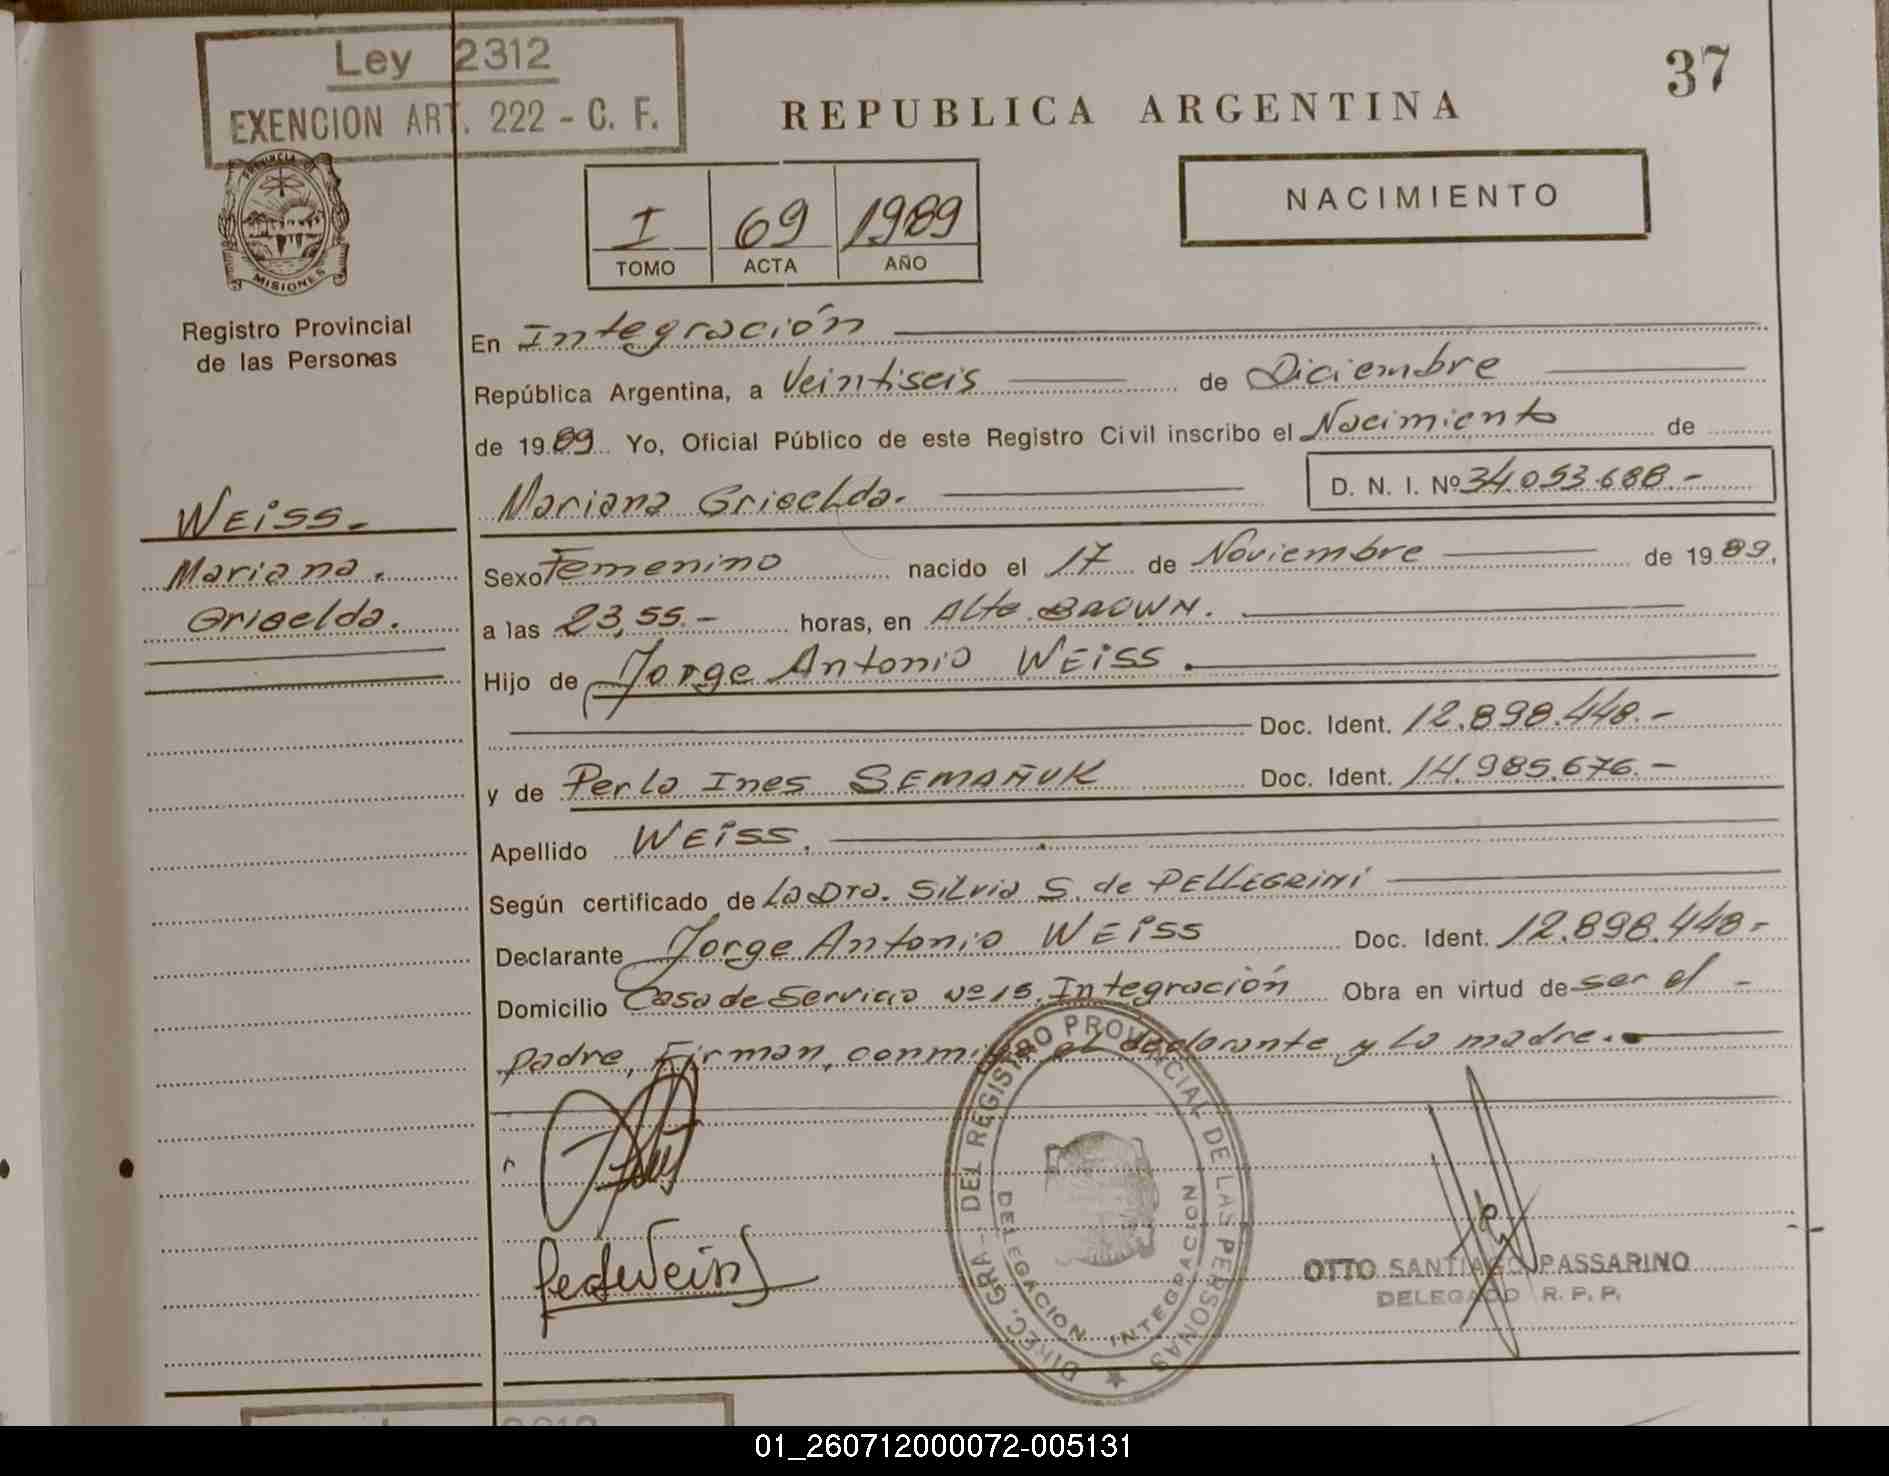 Ley 2312
EXENCION ART. 222 - C. F.
37
REPUBLICA ARGENTINA
NACIMIENTO
PROVINCIA
MISIONES
I 69 1989
TOMO ACTA AÑO
Registro Provincial
de las Personas
En Integración
República Argentina, a Veintiseis de Diciembre
de 1989 Yo, Oficial Público de este Registro Civil inscribo el Nacimiento de
Mariana Griselda.
D. N. I. Nº 34.053.688.-
WEiSS.
Mariana.
Griselda.
Sexo Femenino nacido el 17 de Noviembre de 1989,
a las 23,55.- horas, en Alte BROWN.
Hijo de Jorge Antonio WEiSS.
Doc. Ident. 12.898.448.-
y de Perla Ines SEMAÑUK Doc. Ident. 14.985.676.-
Apellido WEiSS.
Según certificado de La Dra. Silvia S. de PELLEGRINI
Declarante Jorge Antonio WEiSS Doc. Ident. 12.898.448-
Domicilio Casa de Servicio Nº 15. Integración Obra en virtud de ser el -
padre, Firman, conmigo el declarante y la madre.
DIREC. GRA- DEL REGISTRO PROVINCIAL DE LAS PERSONAS
DELEGACION INTEGRACION
OTTO SANTIAGO PASSARINO
DELEGADO R. P. P.
01_260712000072-005131